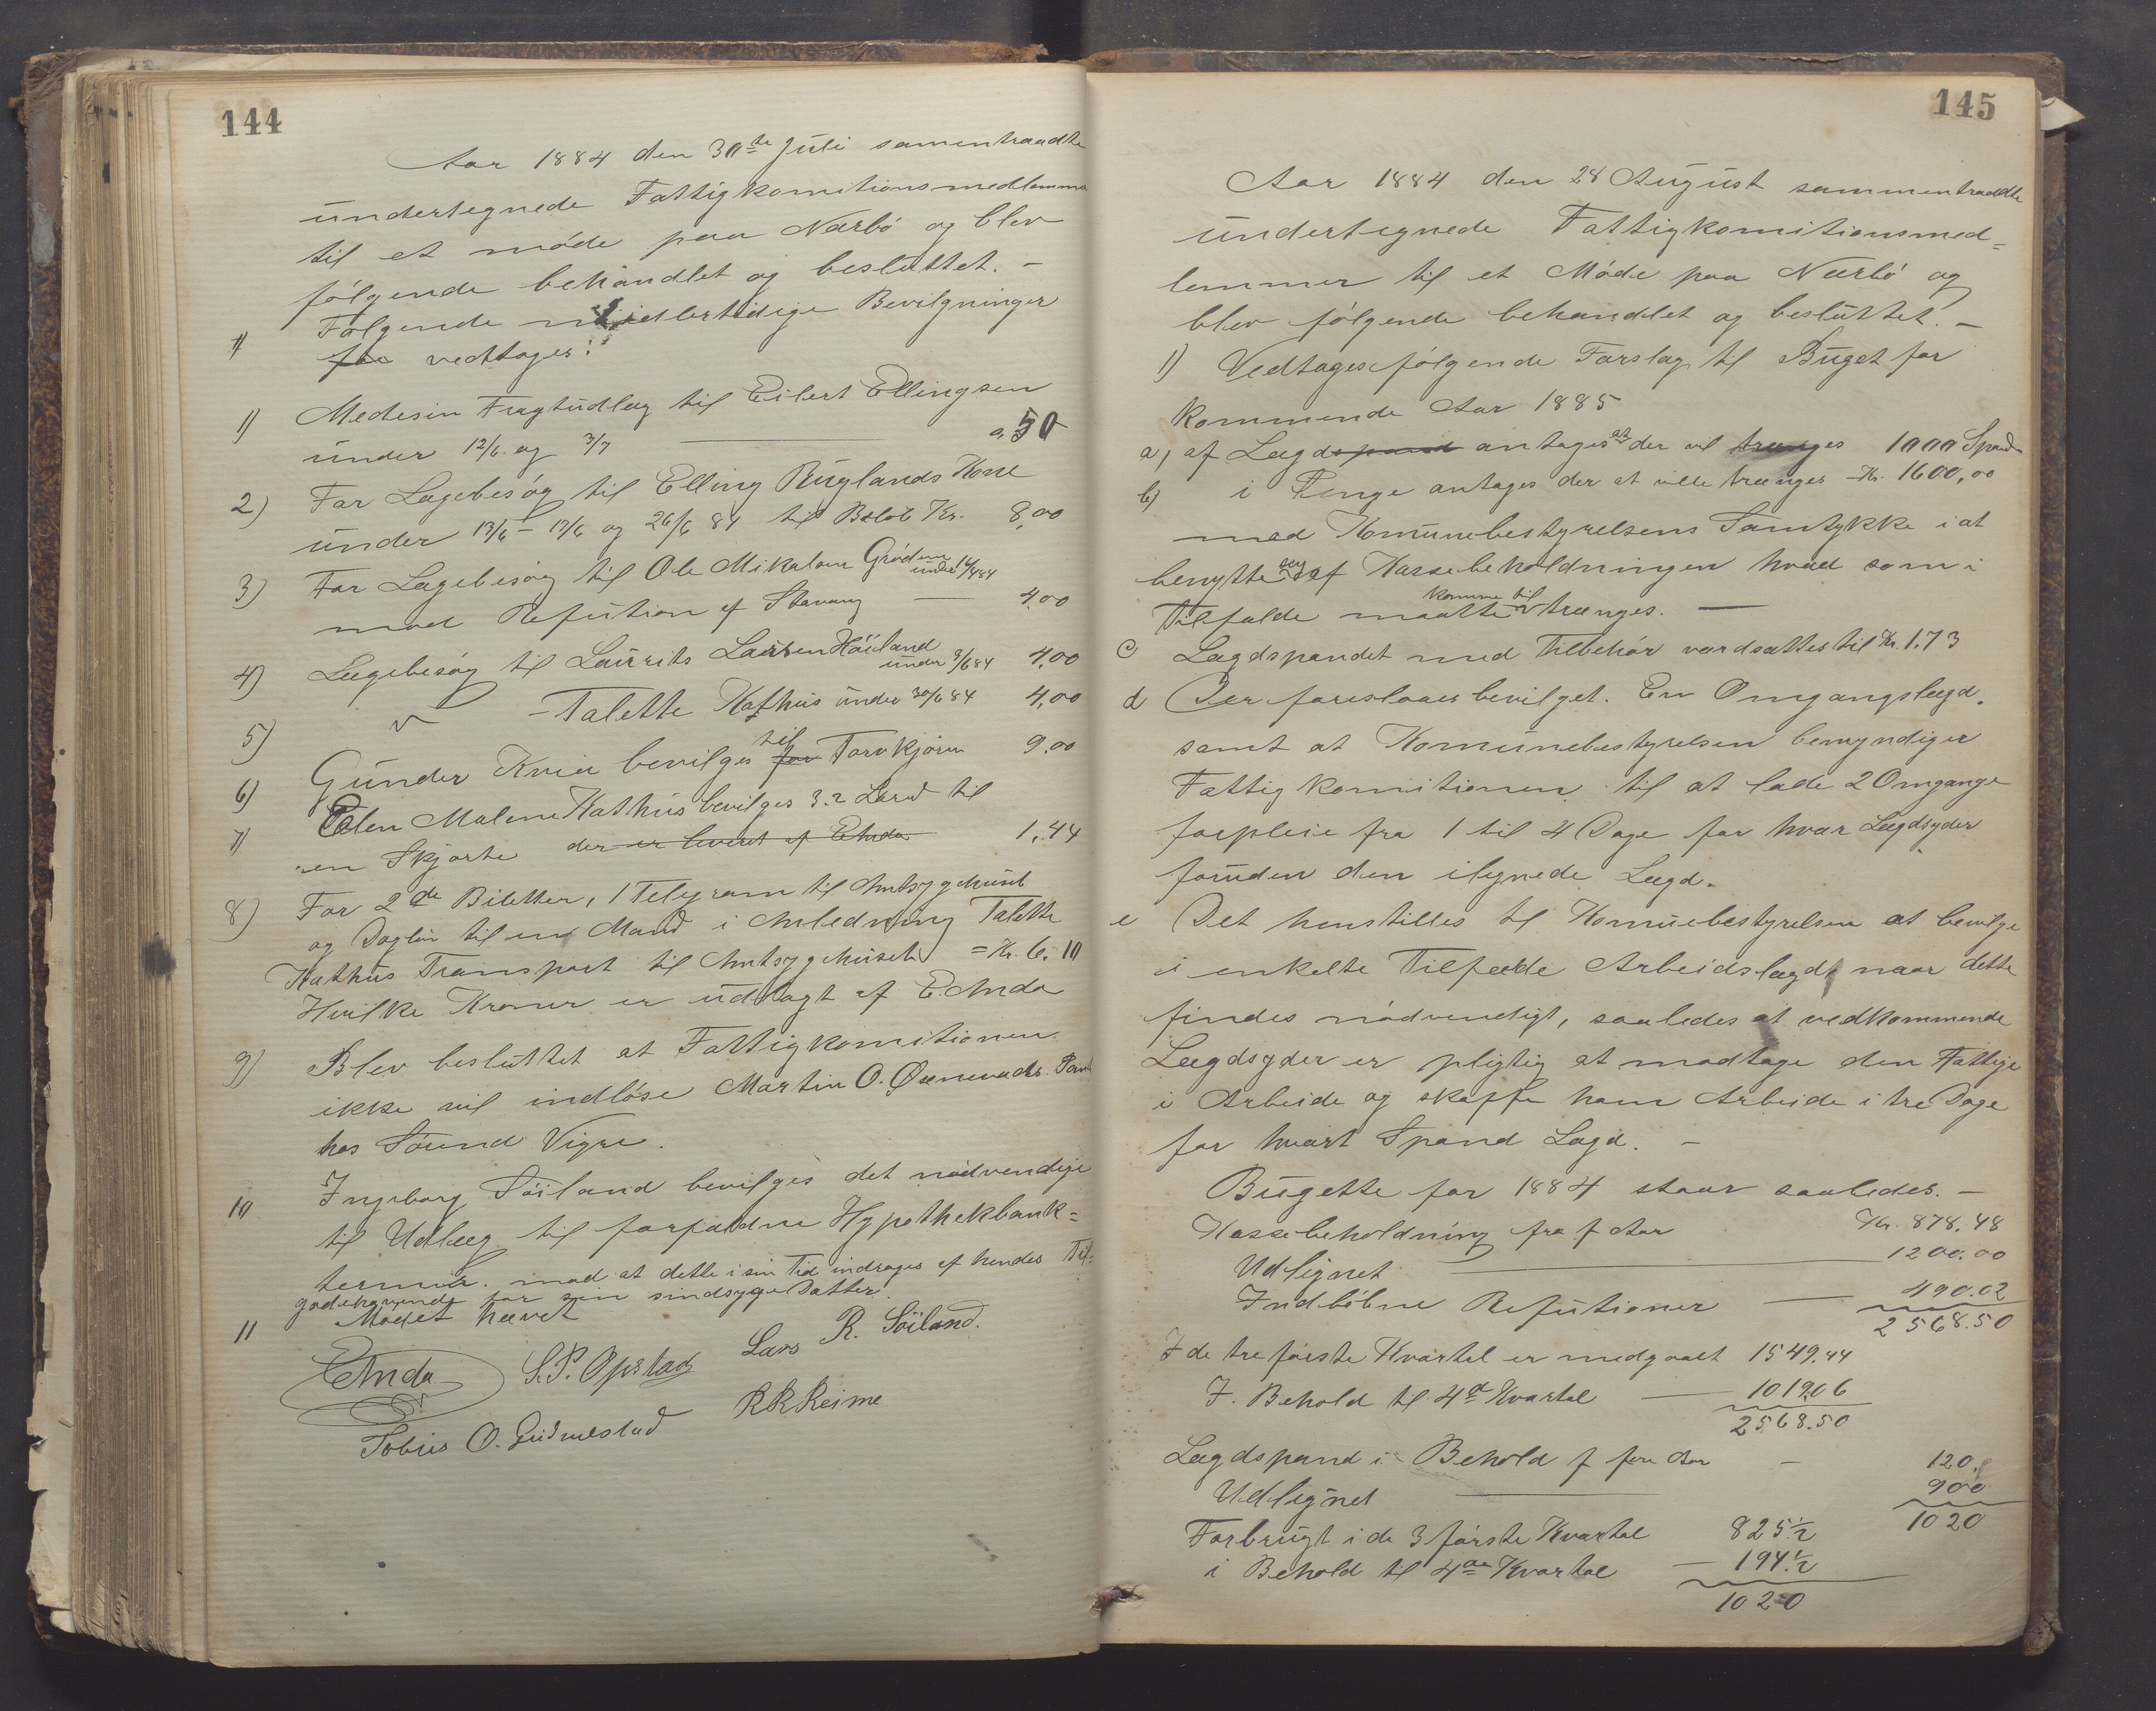 144
Aar 1884 den 30te Juli samentraadte
undertegnede Fattigkomitionsmedlemmer
til et møde paa Nærbø og blev
følgende behandlet og besluttet. –
1) Følgende midlertidige Bevilgninger
for vedtages:
1) Medesin Fragtudlæg til Eilert Ellingsen
under 12/6. og 3/7 0,50
2) For Lægebesøg til Elling Ruglands Kone
under 13/6 – 17/6 og 26/6 84 til Beløb Kr. 8,00
3) For Lægebesøg til Ole Mikalsen Grødem under
mod Refution af Stavang — 4,00
4) Lægebesøg til Laurits Larsen Høiland
under 9/6 84 4,00
5) v – Talette Kathus under 30/6 84 4,00
6) Gunder Kvia bevilges for til Torvkjøren 9,00
7) Elen Malene Kathus bevilges 3.2 Lærred til
en Skjorte der er leveret af E Anda 1,44
8) For 2de Biletter, 1 Telegram til Amtsygehuset
og Dagløn til en Mand i Anledning Talette
Kathus Transport til Amtsygehuset = Kr. 6.10
Hvilke Kroner er udlagt af E. Anda
9) Blev besluttet at Fattigkomitionen
ikke vil indløse Martin O. Øxnevads Pant
hos Søund Vigre.
10 Ingeborg Søiland bevilges det nødvendige
til Udlæg til forfaldne Hypothekbank=
termin. mod at dette i sin Tid indrages af hendes Til=
godehavende for sin sindsyge Datter.
11 Mødet hævet
E Anda S. P. Opstad Lars R. Söiland.
Tobias O. Gudmestad R R Reime
145
Aar 1884 den 28 August sammentraadte
undertegnede Fattigkomitionsmed=
lemmer til et Møde paa Nærbø og
blev følgende behandlet og besluttet. –
1) Vedtages følgende Forslag til Buget for
kommende Aar 1885
a, af Lægdspand antages at der vil trænges 1000 Spand
b) i Penge antages der at ville trænges Kr. 1600,00
med Komunebestyrelsens Samtykke i at
benytte sig af Kassebeholdningen hvad som i
Tilfælde maatte komme til trænges. —
c Lægdspandet med Tilbehør værdsættes til Kr. 1.73
d Der foreslaaes bevilget. En Omgangslægd.
samt at Komunebestyrelsen bemyndiger
Fattigkomitionen til at lade 2 Omgange
forpleie fra 1 til 4 Dage for hver Lægdsyder
foruden den ilignede Lægd.
e Det henstilles til Komuebestyrelsen at bevilge
i enkelte Tilfælde Arbeidslægd, naar dette
findes nødvendigt, saaledes at vedkommende
Lægdsyder er pligtig at modtage den Fattige
i Arbeide og skaffe ham Arbeide i tre Dage
for hvert Spand Lægd. –
Bugette for 1884 staar saaledes. –
Kassebeholdning fra f Aar Kr. 878,48
Udlignet 1200.00
Indløbne Refutioner — 490.02
2568.50
I de tre første Kvartal er medgaaet 1549.44
I. Behold til 4de Kvartal — 1019.06
2568.50
Lægdspand i Behold f fore Aar – 120.
Udlignet 900
1020
Forbrugt i de 3 første Kvartal 825 1/2
i Behold til 4de Kvartal — 194 1/2
1020